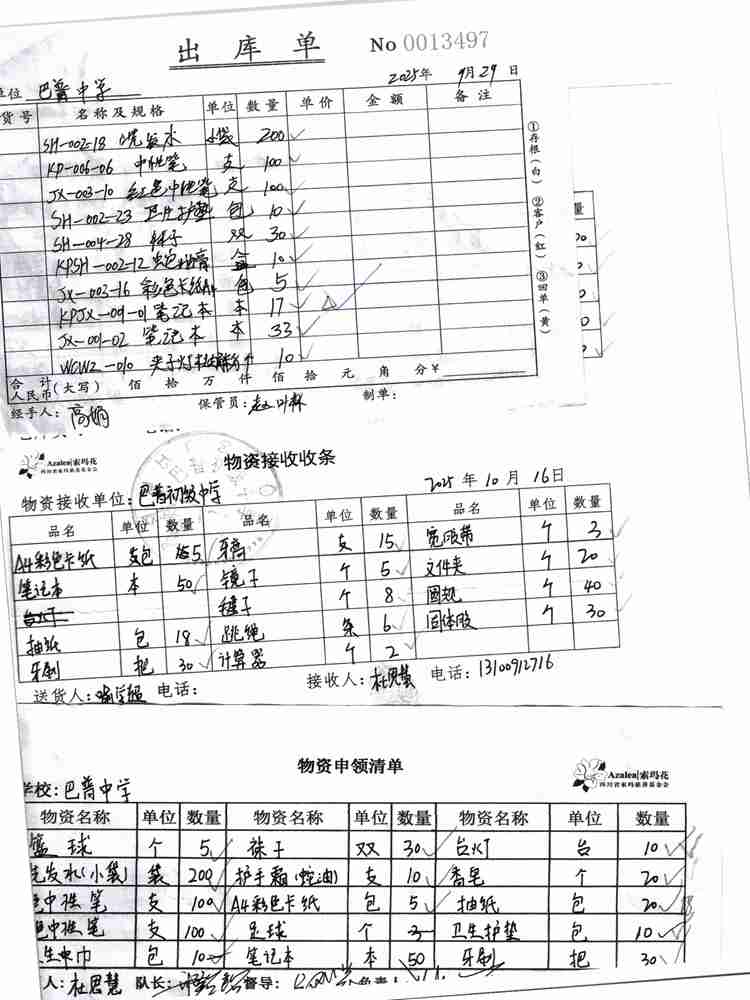 出库单 No 0013497
单位 巴普中学 2025年 9月29日
货号 名称及规格 单位 数量 单价 金额 备注
SH-002-18 洗发水 小袋 200
KP-006-06 中性笔 支 100
JX-003-10 红色中性笔 支 100
SH-002-23 卫生护垫 包 10
SH-004-28 袜子 双 30
KPSH-002-12 蛇油膏 盒 10
JX-003-16 彩色卡纸A4 包 5
KPJX-09-01 笔记本 本 17
JX-001-02 笔记本 本 33
WCWZ-010 夹子灯 个 10
合计人民币(大写) 佰 拾 万 仟 佰 拾 元 角 分 ¥
经手人: 高娟 保管员: 制单:
①存根(白) ②客户(红) ③回单(黄)
数量
Azalea|索玛花
四川省索玛慈善基金会
物资接收收条
物资接收单位: 巴普初级中学 2025年10月16日
品名 单位 数量 品名 单位 数量 品名 单位 数量
A4彩色卡纸 包 5 牙膏 支 15 宽胶带 个 3
笔记本 本 50 镜子 个 5 文件夹 个 20
台灯 毽子 个 8 圆规 个 40
抽纸 包 18 跳绳 条 6 固体胶 个 30
牙刷 把 30 计算器 个 2
送货人: 电话: 接收人: 杜思慧 电话: 13100912716
物资申领清单
Azalea|索玛花
四川省索玛慈善基金会
学校: 巴普中学
物资名称 单位 数量 物资名称 单位 数量 物资名称 单位 数量
篮球 个 5 袜子 双 30 台灯 台 10
洗发水(小袋) 袋 200 护手霜(蛇油) 支 10 香皂 个 20
色中性笔 支 100 A4彩色卡纸 包 5 抽纸 包 20
色中性笔 支 100 足球 个 3 卫生护垫 包 10
卫生巾 包 10 笔记本 本 50 牙刷 把 30
人: 杜思慧 队长: 督导: 负责人